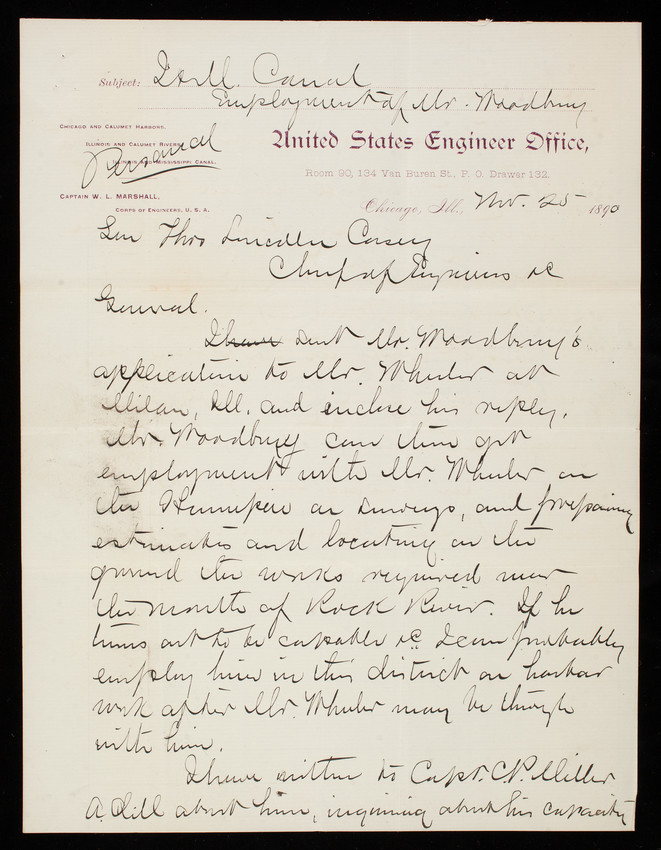 Subject: I & M. Canal
Employment of Mr. Woodbury
CHICAGO AND CALUMET HARBORS.
ILLINOIS AND CALUMET RIVERS.
ILLINOIS AND MISSISSIPPI CANAL.
Personal
CAPTAIN W. L. MARSHALL,
CORPS OF ENGINEERS, U. S. A.
United States Engineer Office,
Room 90, 134 Van Buren St., P. O. Drawer 132.
Chicago, Ill., Nov. 25 1890
Gen Thos Lincoln Casey
Chief of Engineers &c
General.
I have sent Mr. Woodbury's
application to Mr. Wheeler at
Milan, Ill. and enclose his reply.
Mr. Woodbury can then get
employment with Mr. Wheeler on
the Hennepin on surveys, and preparing
estimates and locating on the
ground the works required near
the mouth of Rock River. If he
turns out to be capable &c I can probably
employ him in this district on harbor
work after Mr. Wheeler may be through
with him.
I have written to Capt. C. P. Miller
A.Q.M. about him, inquiring about his capacity